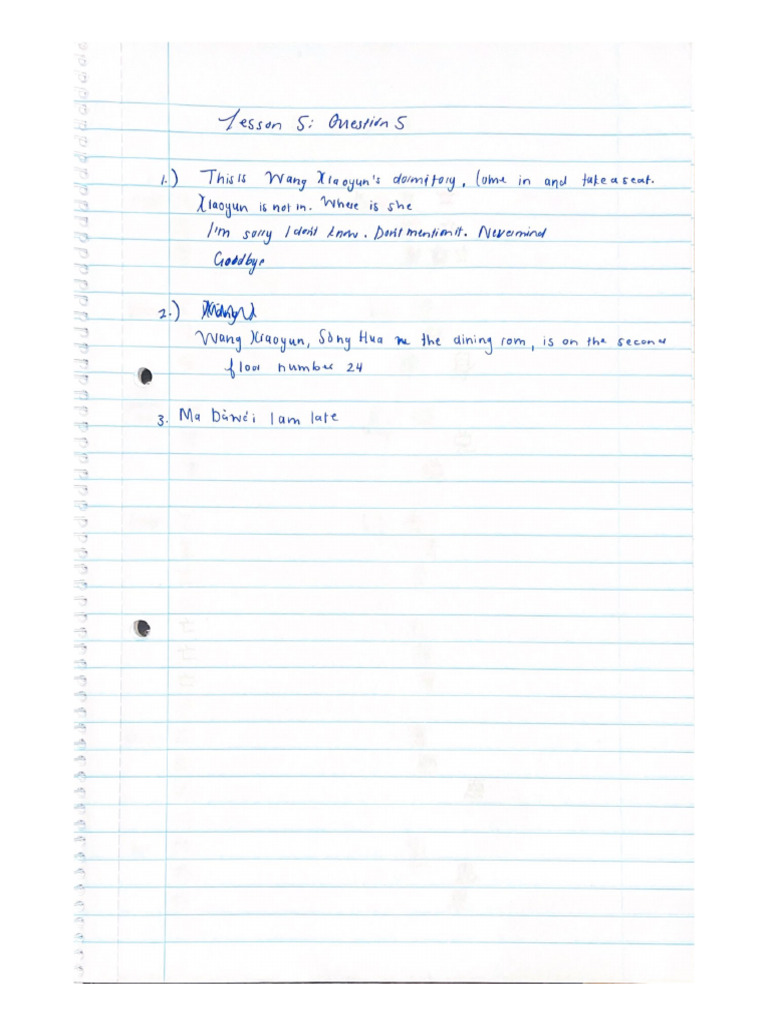 Lesson 5: Question 5
1.) This is Wang Xiaoyun's dormitory, Come in and take a seat.
Xiaoyun is not in. Where is she
I'm sorry I don't know. Don't mention it. Nevermind
Goodbye
2.)
Wang Xiaoyun, Song Hua the dining rom, is on the second
floor number 24
3. Ma Dàwéi I am late